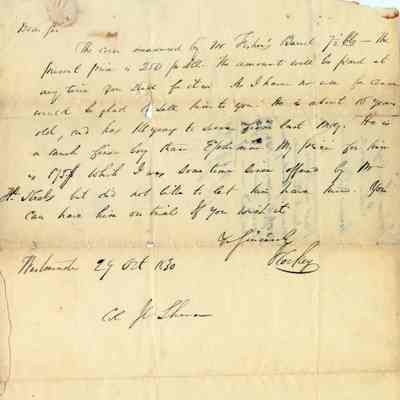 Dear Sir
The corn measured by Mr Fisher's Barrel 7½ bbls — The
present price is 250 pr bbl. The amount will be paid at
any time you shall for it. As I have no use for
would be glad to sell him to you. He is about 15 years
old, and has 16 years to serve from last May. He is
a much finer boy than My price for him
is $75 which I was some time since offered by Mr
but did not like to let him have him. You
can have him on trial if you wish it
Yr Sincerely

Westminster 29 Oct 1830
Col J